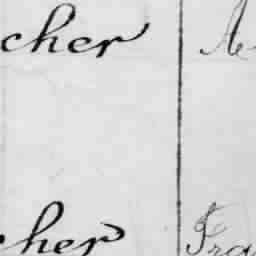 cher
cher Fra